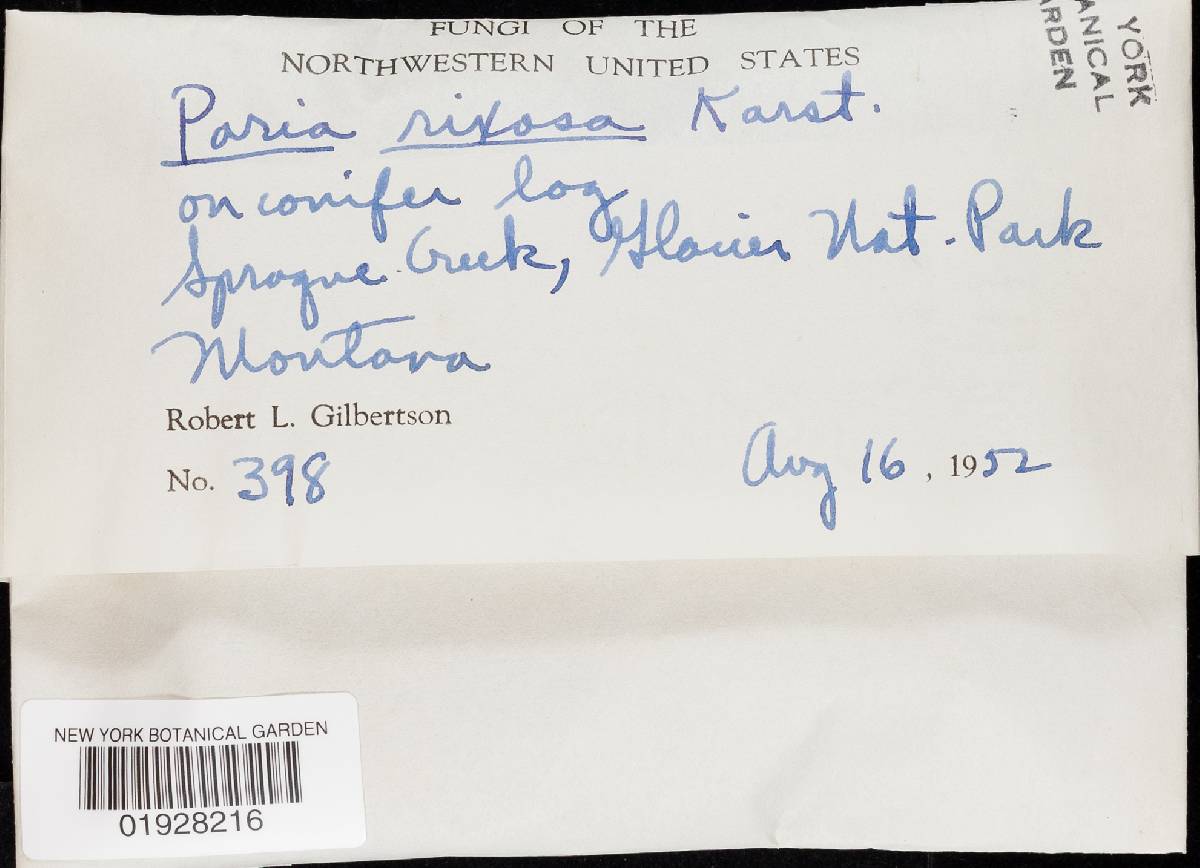 FUNGI OF THE
NORTHWESTERN UNITED STATES
YORK
ANICAL
RDEN
Poria rixosa Karst.
on conifer log
Sprague Creek, Glacier Nat. Park
Montana
Robert L. Gilbertson
No. 398
Aug 16, 1952
NEW YORK BOTANICAL GARDEN
01928216